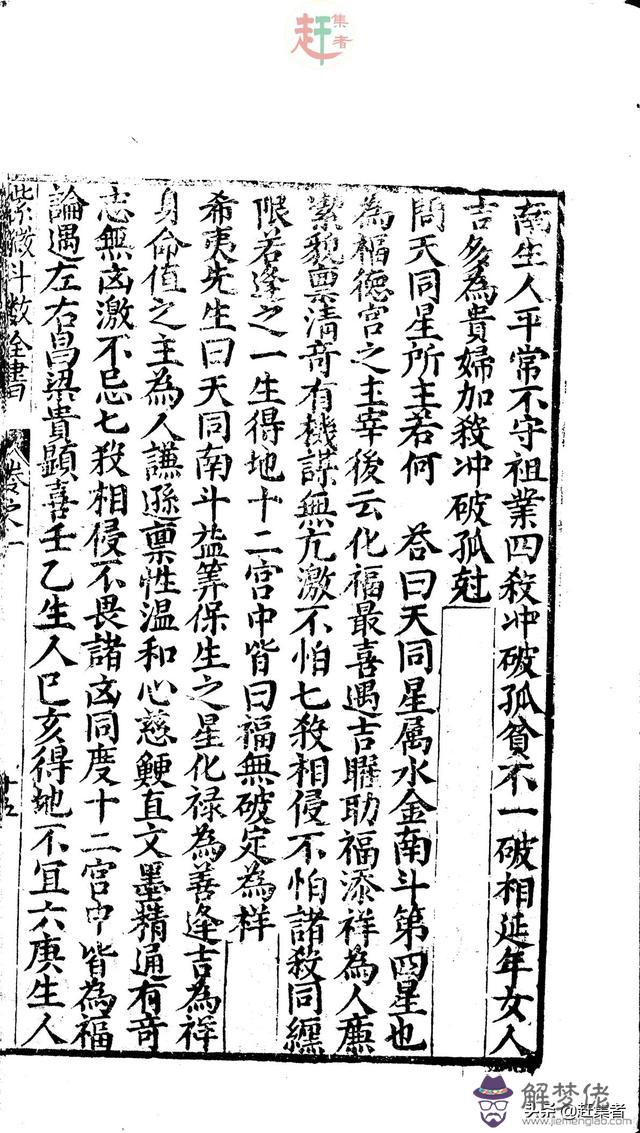 集
赶
者
南生人平常不守祖業四殺冲破孤貧不一破相延年女人
吉多為貴婦加殺冲破孤尅
問天同星所主若何　答曰天同星属水金南斗第四星也
為福德宮之主宰後云化福最喜遇吉曜助福添祥為人廉
潔貌禀清奇有機謀無亢激不怕七殺相侵不怕諸殺同纏
限若逢之一生得地十二宮中皆曰福無破定為祥
希夷先生曰天同南斗益筭保生之星化禄為善逢吉為祥
身命值之主為人謙遜禀性温和心慈鯁直文墨精通有奇
志無凶激不忌七殺相侵不畏諸凶同度十二宮中皆為福
論遇左右昌梁貴顯喜壬乙生人巳亥得地不宜六庚生人
紫微斗数全書　卷之一　十五
解梦佬
www.jiemenglao.com
头杀 @赶集者